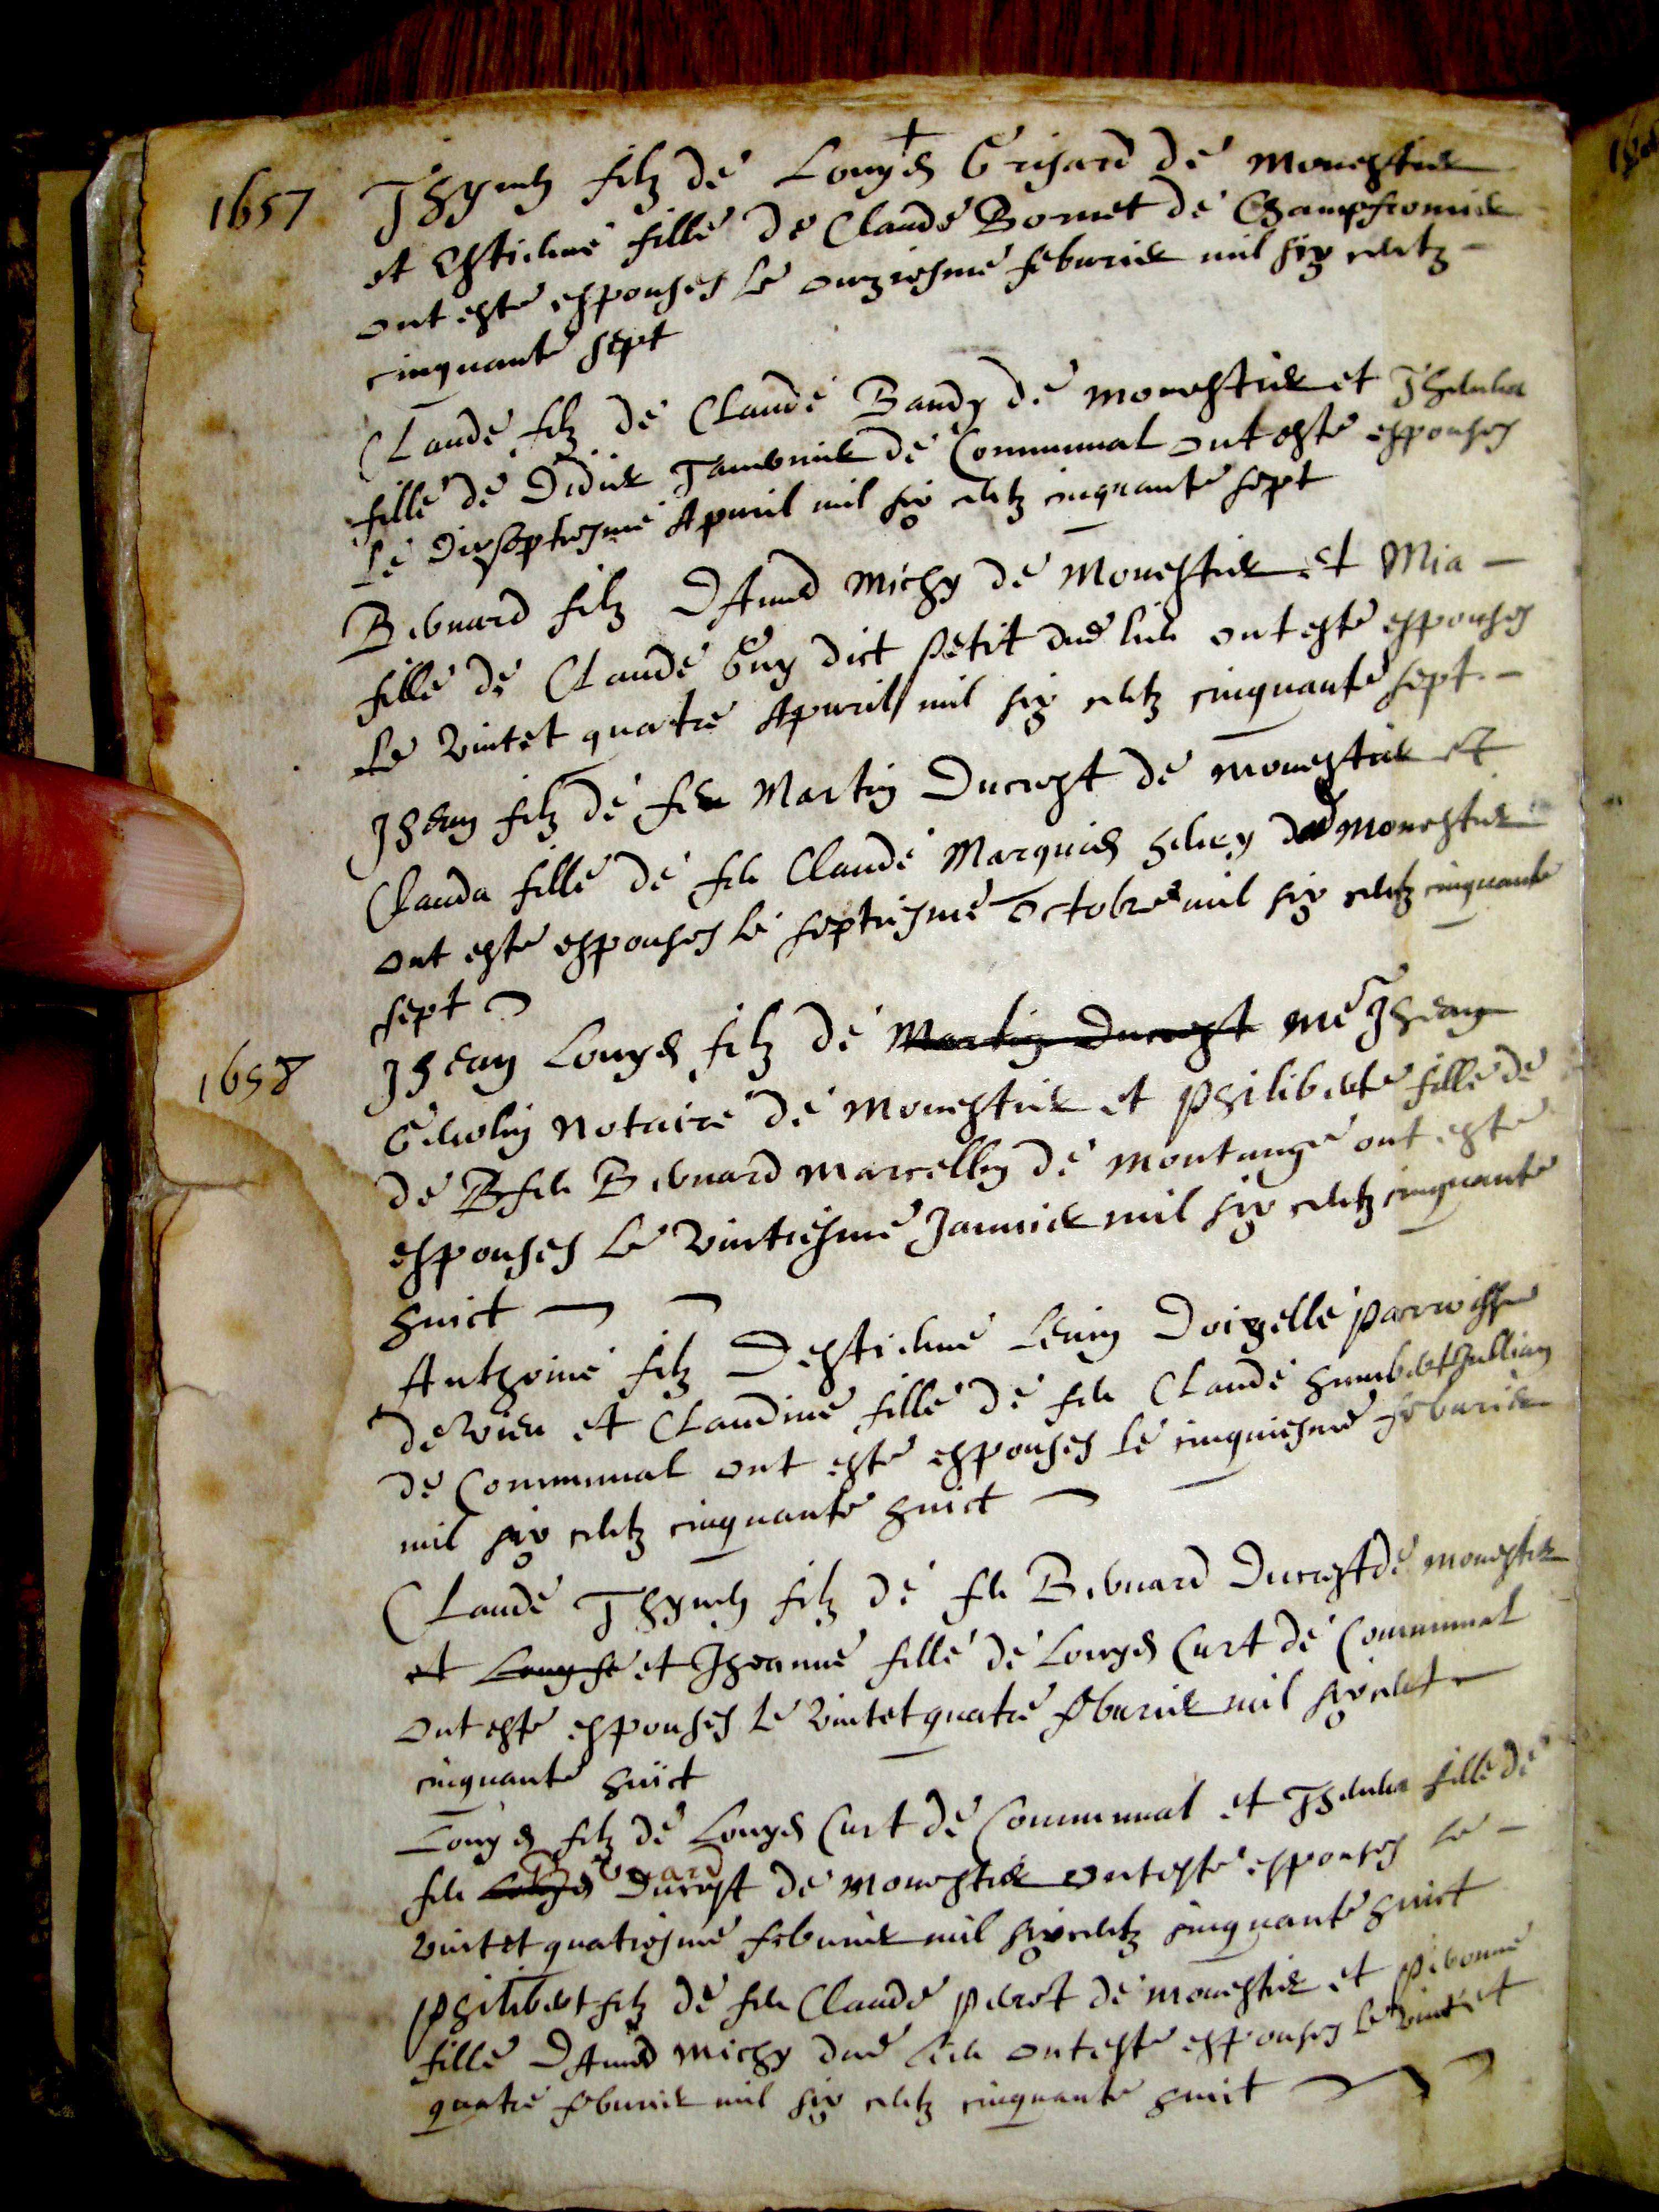 1657 Thyven filz de Louys Grisard de monestier
et Estienne fille de Claude Bornet de Champfromier
ont este espouses le onziesme febvrier mil six centz
cinquante sept
Claude filz de Claude Baudy de monestier et Thevena
fille de Didier Tavernier de Communal ont este espouses
le dixseptiesme Apvril mil six centz cinquante sept
Bernard filz D Amed Michy de Monestier et Mia
fille de Claude Guy dict petit dud lieu ont este espouses
le vintet quatre Apvril mil six centz cinquante sept
Jhean filz de feu Martin Ducrest de monestier et
Clauda fille de feu Claude Marquis de monestier
ont este espouses le septiesme octobre mil six centz cinquante
sept
1658 Jhean Louys filz de Martin Ducrest me Jhean
Genolin Notaire de monestier et philiberte fille de
de feu Bernard Marcellin de montange ont este
espouses le vintiesme Janvier mil six centz cinquante
huict
Anthoine filz Destienne levin Doizelle parroisse
de vieu et Claudine fille de feu Claude humbert Jullian
de Communal ont este espouses le cinquiesme febvrier
mil six centz cinquante huict
Claude Thyven filz de feu Bernard Ducrest de monestier
et Louyse et Jheanne fille de Louys Curt de Communal
ont este espouses le vintet quatre febvrier mil six cent
cinquante huict
Louys filz de Louys Curt de Communal et Thevena fille de
feu Louys Bernard Ducrest de monestier ont este espouses le
vintet quatriesme febvrier mil six centz cinquante huict
philibert filz de feu Claude perret de monestier et pernonne
fille D Amed michy dud lieu ont este espouses le vintet
quatre febvrier mil six centz cinquante huict